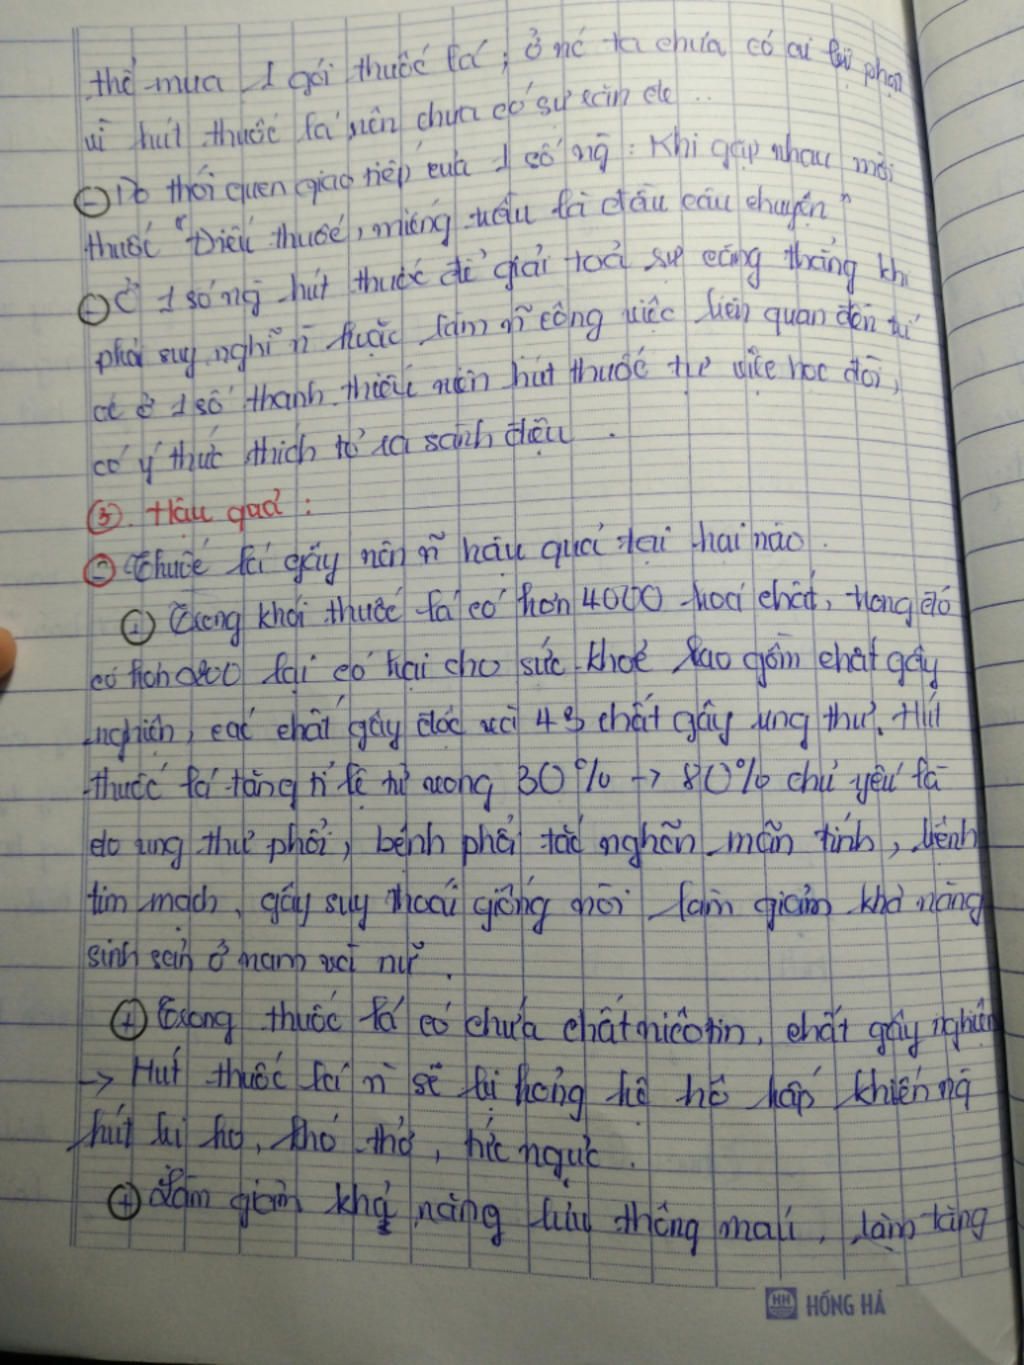 thể mua 1 gói thuốc lá; ở nc ta chưa có ai bị phạt
vì hút thuốc lá nên chưa có sự răn đe..
- Do thói quen giao tiếp của 1 số ng̃: Khi gặp nhau mời
thuốc "Điếu thuốc, miếng trầu là đầu câu chuyện"
- Ở 1 số ng̃ hút thuốc để giải toả sự căng thẳng khi
phải suy nghĩ ñ hoặc làm ñ công việc liên quan đến trí
óc ở 1 số thanh thiếu niên hút thuốc từ việc học đòi,
có ý thức thích tỏ ra sành điệu.
③. Hậu quả:
- Thuốc lá gây nên ñ hậu quả tai hại nào.
+ Trong khói thuốc lá có hơn 4000 hoá chất, trong đó
có hơn 200 loại có hại cho sức khoẻ bao gồm chất gây
nghiện, các chất gây độc và 43 chất gây ung thư. Hút
thuốc lá tăng tỉ lệ tử vong 30% → 80% chủ yếu là
do ung thư phổi, bệnh phổi tắc nghẽn mãn tính, bệnh
tim mạch, gây suy thoái giống nòi làm giảm khả năng
sinh sản ở nam và nữ.
+ Trong thuốc lá có chứa chất nicôtin, chất gây nghiện
→ Hút thuốc lá ñ sẽ bị hỏng hệ hô hấp khiến ng̃
hút bị ho, khó thở, tức ngực.
+ Làm giảm khả năng lưu thông máu, làm tăng
HH HỒNG HÀ